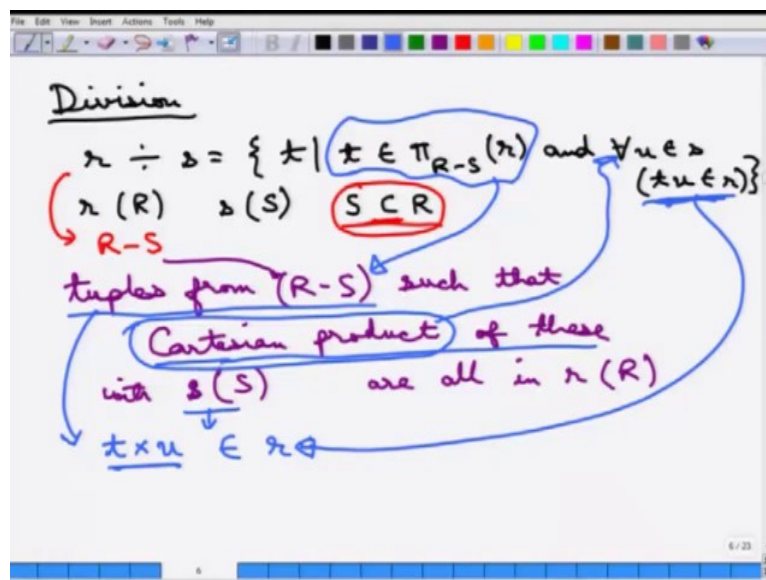 File Edit View Insert Actions Tools Help
Division
r ÷ s = { t | t ∈ π_{R-S}(r) and ∀u ∈ s
(tu ∈ r)}
r (R) s(S) S ⊂ R
R-S
tuples from (R-S) such that
Cartesian product of these
with s(S) are all in r (R)
t×u ∈ r
6/23
6